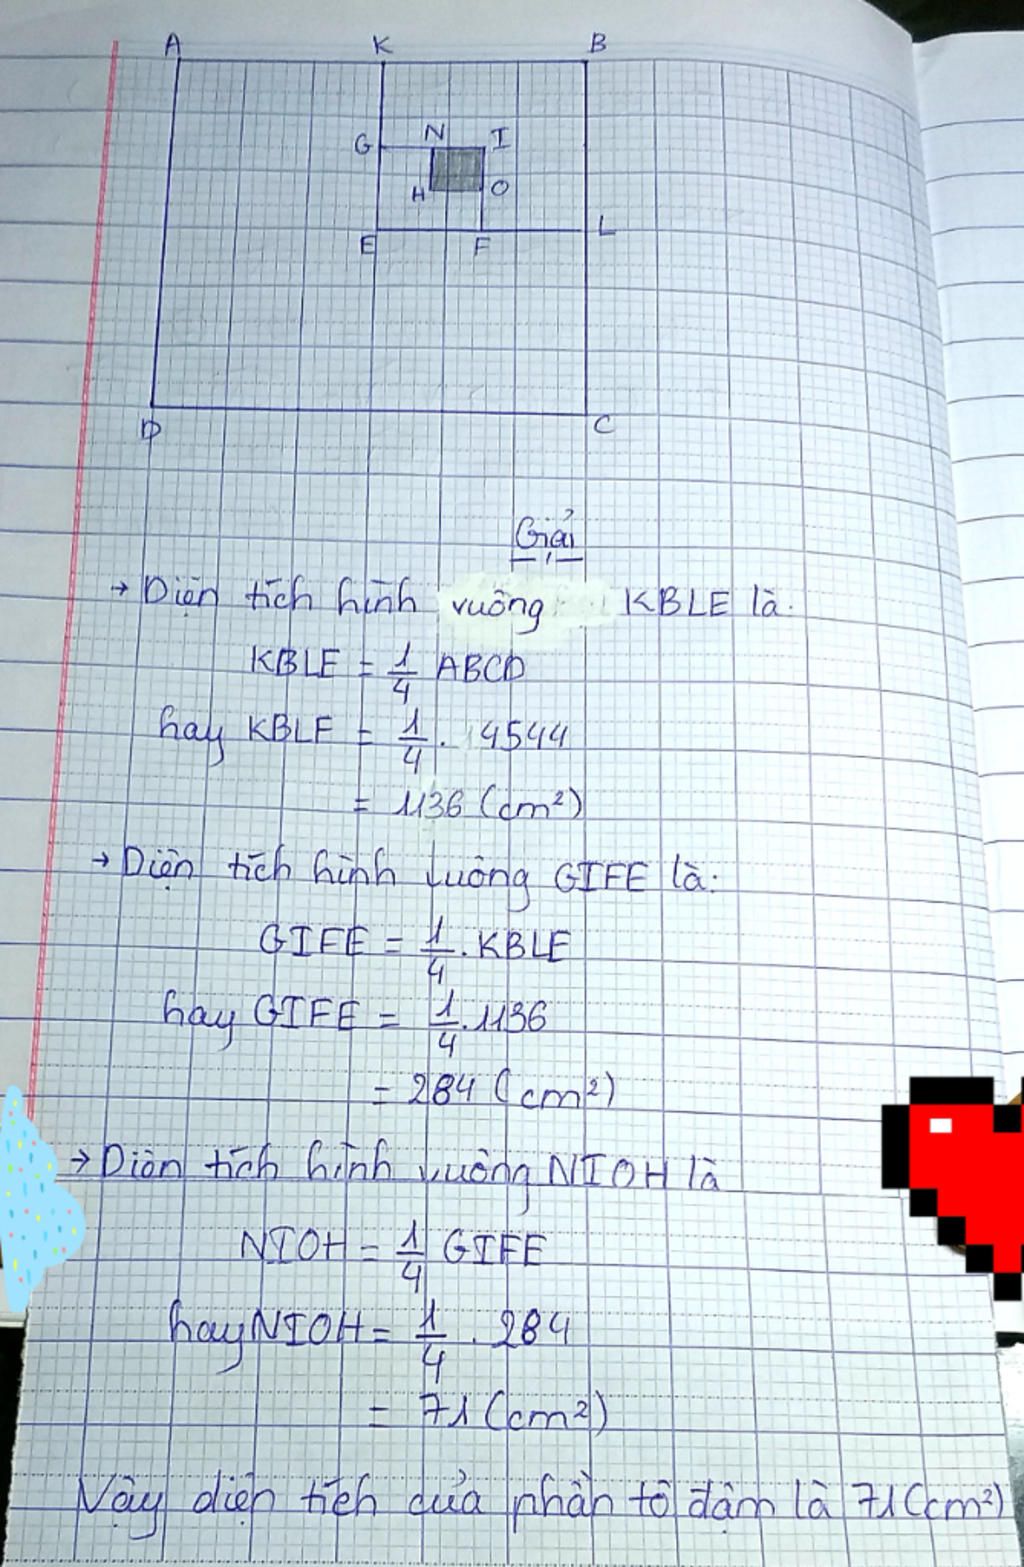 A K B
G N I
H O
E F L
D C
Giải
→ Diện tích hình vuông KBLE là:
KBLE = 1/4 ABCD
hay KBLE = 1/4 . 4544
= 1136 (cm²)
→ Diện tích hình vuông GIFE là:
GIFE = 1/4 . KBLE
hay GIFE = 1/4 . 1136
= 284 (cm²)
→ Diện tích hình vuông NIOH là
NIOH = 1/4 GIFE
hay NIOH = 1/4 . 284
= 71 (cm²)
Vậy diện tích của phần tô đậm là 71 (cm²)